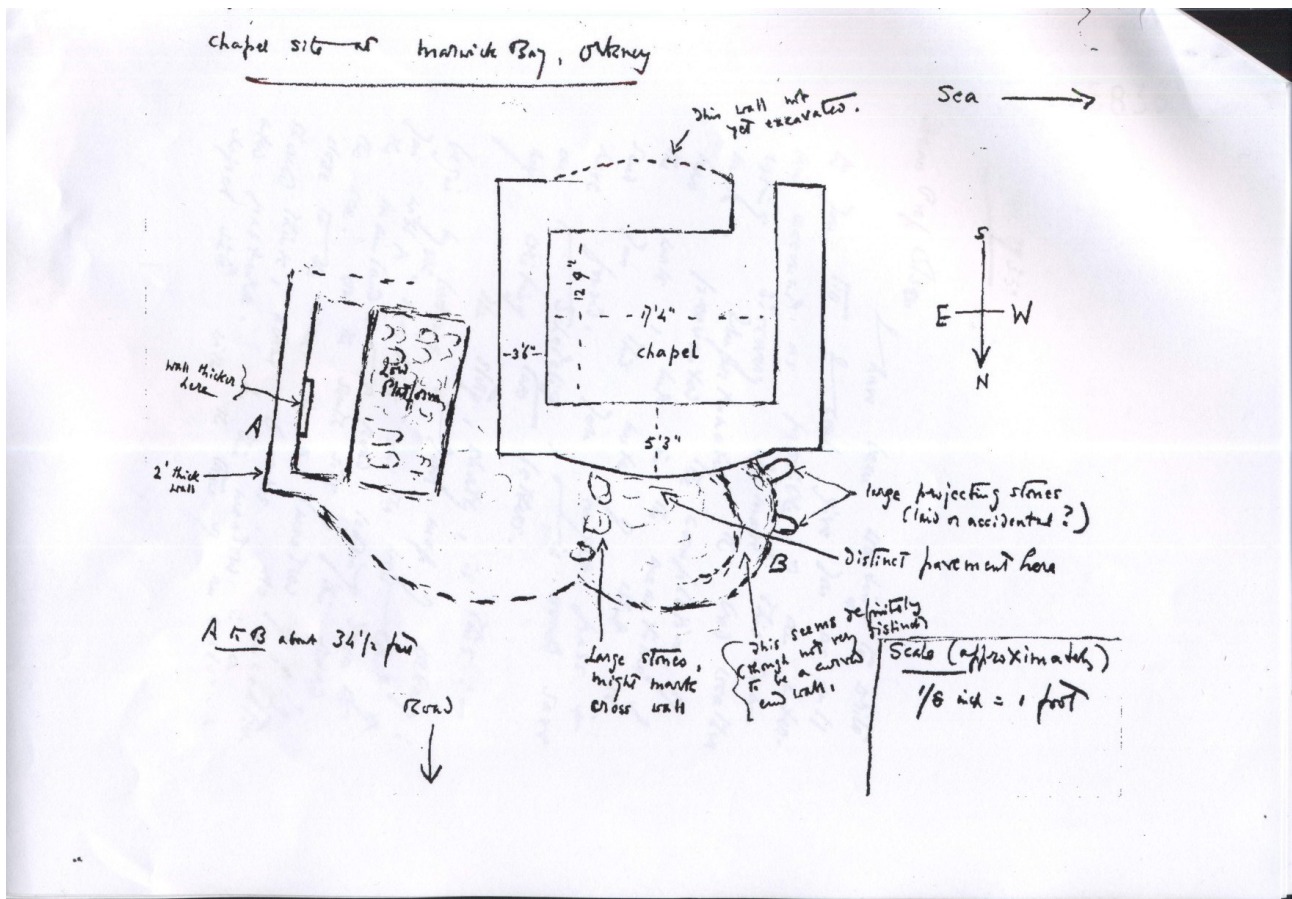 Chapel site at Marwick Bay, Orkney
This wall not
yet excavated.
Sea
S
E W
N
12'9"
17'4"
3'6"
chapel
Low
Platform
wall thicker
here
A
2' thick
wall
5'3"
large projecting stones
(laid or accidental?)
B
Distinct pavement here
A to B about 34 1/2 feet
Large stones,
might mark
cross wall
This seems definitely
(though not very distinct)
to be a curved
end wall.
Road
Scale (approximately)
1/8 inch = 1 foot